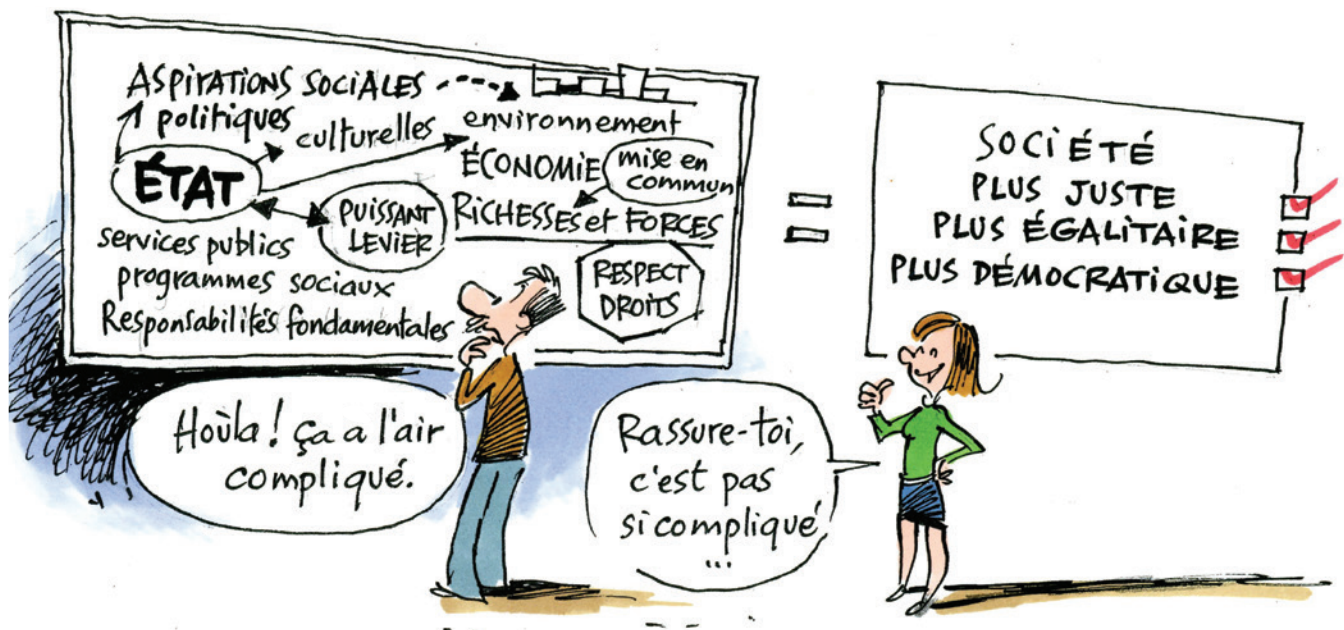 ASPIRATIONS SOCIALES
politiques
culturelles
environnement
ÉTAT
ÉCONOMIE
mise en
commun
PUISSANT
LEVIER
RICHESSES et FORCES
services publics
programmes sociaux
Responsabilités fondamentales
RESPECT
DROITS
=
SOCIÉTÉ
PLUS JUSTE
PLUS ÉGALITAIRE
PLUS DÉMOCRATIQUE
Hoùla! ça a l'air
compliqué.
Rassure-toi,
c'est pas
si compliqué
...